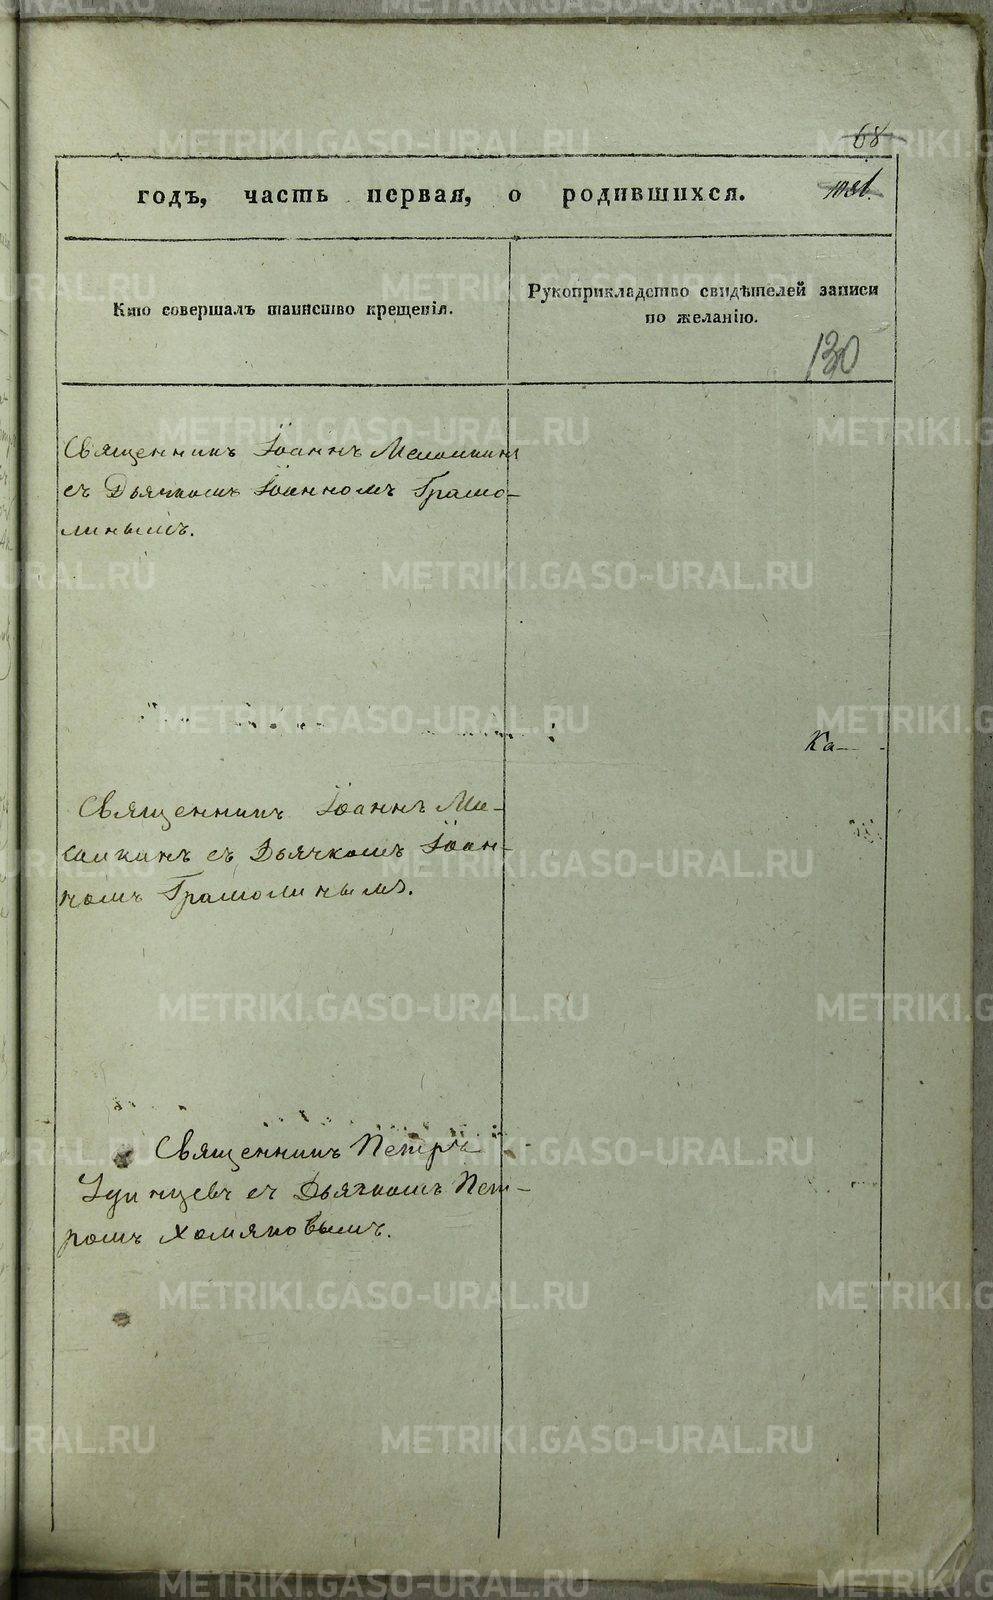 68
годъ, часть первая, о родившихся.
1031.
Кто совершалъ таинство крещенія.
Рукоприкладство свидѣтелей записи
по желанію.
130
Священникъ Іоаннъ
съ Дьячкомъ Іоанномъ Грамо-
линымъ.
Ка-
Священникъ Іоаннъ Ми-
съ Дьячкомъ Іоан-
номъ Грамолинымъ.
Священникъ Петръ
Удинцевъ съ Дьячкомъ Пет-
ромъ Хомяковымъ.
METRIKI.GASO-URAL.RU